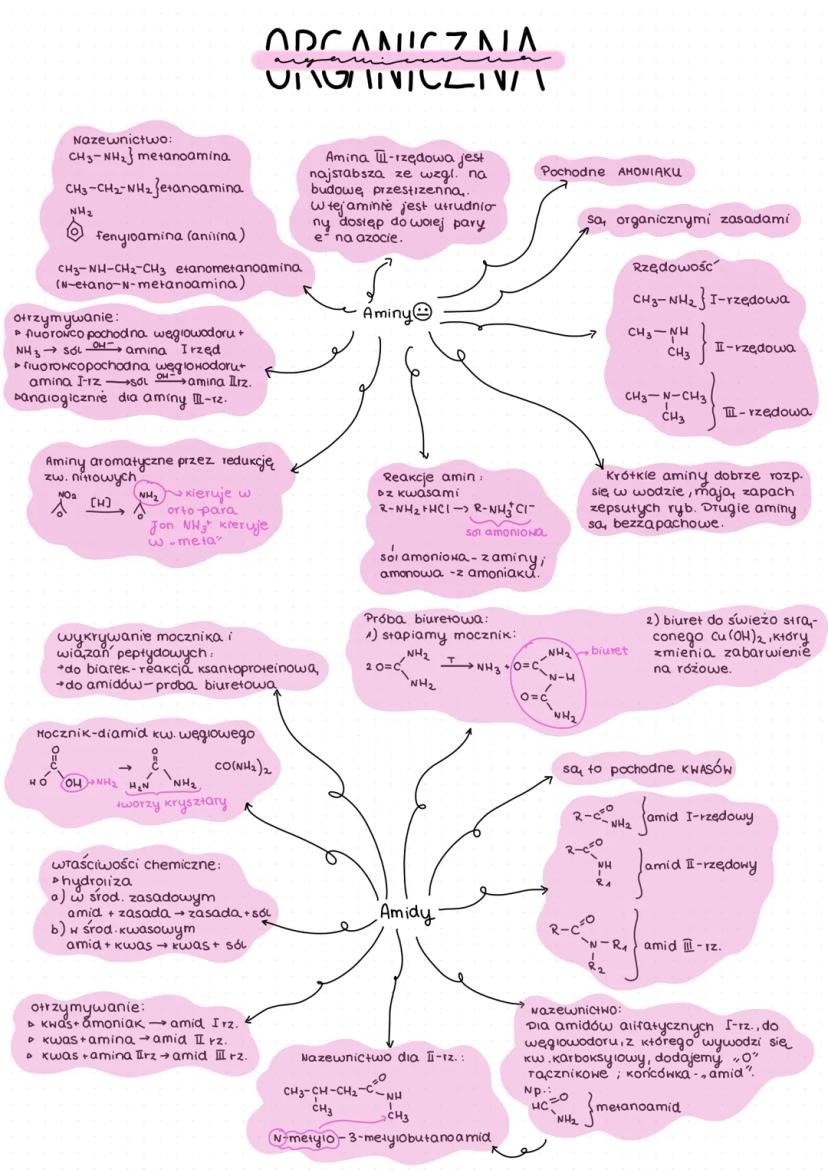 ORGANICZNA
organiczna
Nazewnictwo:
CH₃-NH₂} metanoamina
CH₃-CH₂-NH₂} etanoamina
NH₂
fenyloamina (anilina)
CH₃-NH-CH₂-CH₃ etanometanoamina
(N-etano-N-metanoamina)
Amina III-rzędowa jest
najsłabsza ze wzgl. na
budowę przestrzenną.
W tej aminie jest utrudnio-
ny dostęp do wolej pary
e⁻ na azocie.
Pochodne AMONIAKU
są organicznymi zasadami
Aminy
Rzędowość
CH₃-NH₂} I-rzędowa
CH₃-NH
CH₃
II-rzędowa
CH₃-N-CH₃
CH₃
III-rzędowa
otrzymywanie:
▹ fluorowcopochodna węglowodoru +
NH₃ → sól OH⁻→ amina I rzęd
▹ fluorowcopochodna węglowodoru+
amina I-rz → sól OH⁻→ amina II rz.
▹ analogicznie dla aminy III-rz.
Aminy aromatyczne przez redukcję
zw. nitrowych
NO₂ [H]→ NH₂ → kieruje w
orto-para
Jon NH₃⁺ kieruje
w „meta”
Reakcje amin:
▹ z kwasami
R-NH₂+HCl → R-NH₃⁺Cl⁻
sól amoniowa
sól amoniowa - z aminy;
amonowa - z amoniaku.
Krótkie aminy dobrze rozp.
się w wodzie, mają zapach
zepsutych ryb. Długie aminy
są bezzapachowe.
wykrywanie mocznika i
wiązań peptydowych:
→do białek-reakcja ksantoproteinowa,
→do amidów-próba biuretowa
Próba biuretowa:
1) stapiamy mocznik:
2 O=C NH₂ NH₂ T→ NH₃ + O=C NH₂ N-H O=C NH₂ → biuret
2) biuret do świeżo strą-
conego Cu(OH)₂, który
zmienia zabarwienie
na różowe.
Mocznik-diamid kw. węglowego
O C HO OH →NH₂ → O C H₂N NH₂ CO(NH₂)₂
tworzy kryształy
są to pochodne KWASÓW
R-C=O NH₂ } amid I-rzędowy
R-C=O NH R₁ } amid II-rzędowy
R-C=O N-R₁ R₂ } amid III-rz.
właściwości chemiczne:
▹ hydroliza
a) w środ. zasadowym
amid + zasada → zasada + sól
b) w środ. kwasowym
amid + kwas → kwas + sól
Amidy
otrzymywanie:
▹ kwas+amoniak → amid I rz.
▹ kwas+amina → amid II rz.
▹ kwas+amina II rz → amid III rz.
Nazewnictwo dla II-rz.:
CH₃-CH-CH₂-C=O
CH₃ NH
CH₃
N-metylo-3-metylobutanoamid
Nazewnictwo:
Dla amidów alifatycznych I-rz., do
węglowodoru, z którego wywodzi się
kw. karboksylowy, dodajemy „O”
łącznikowe; końcówka-„amid”.
Np.:
HC=O NH₂ } metanoamid